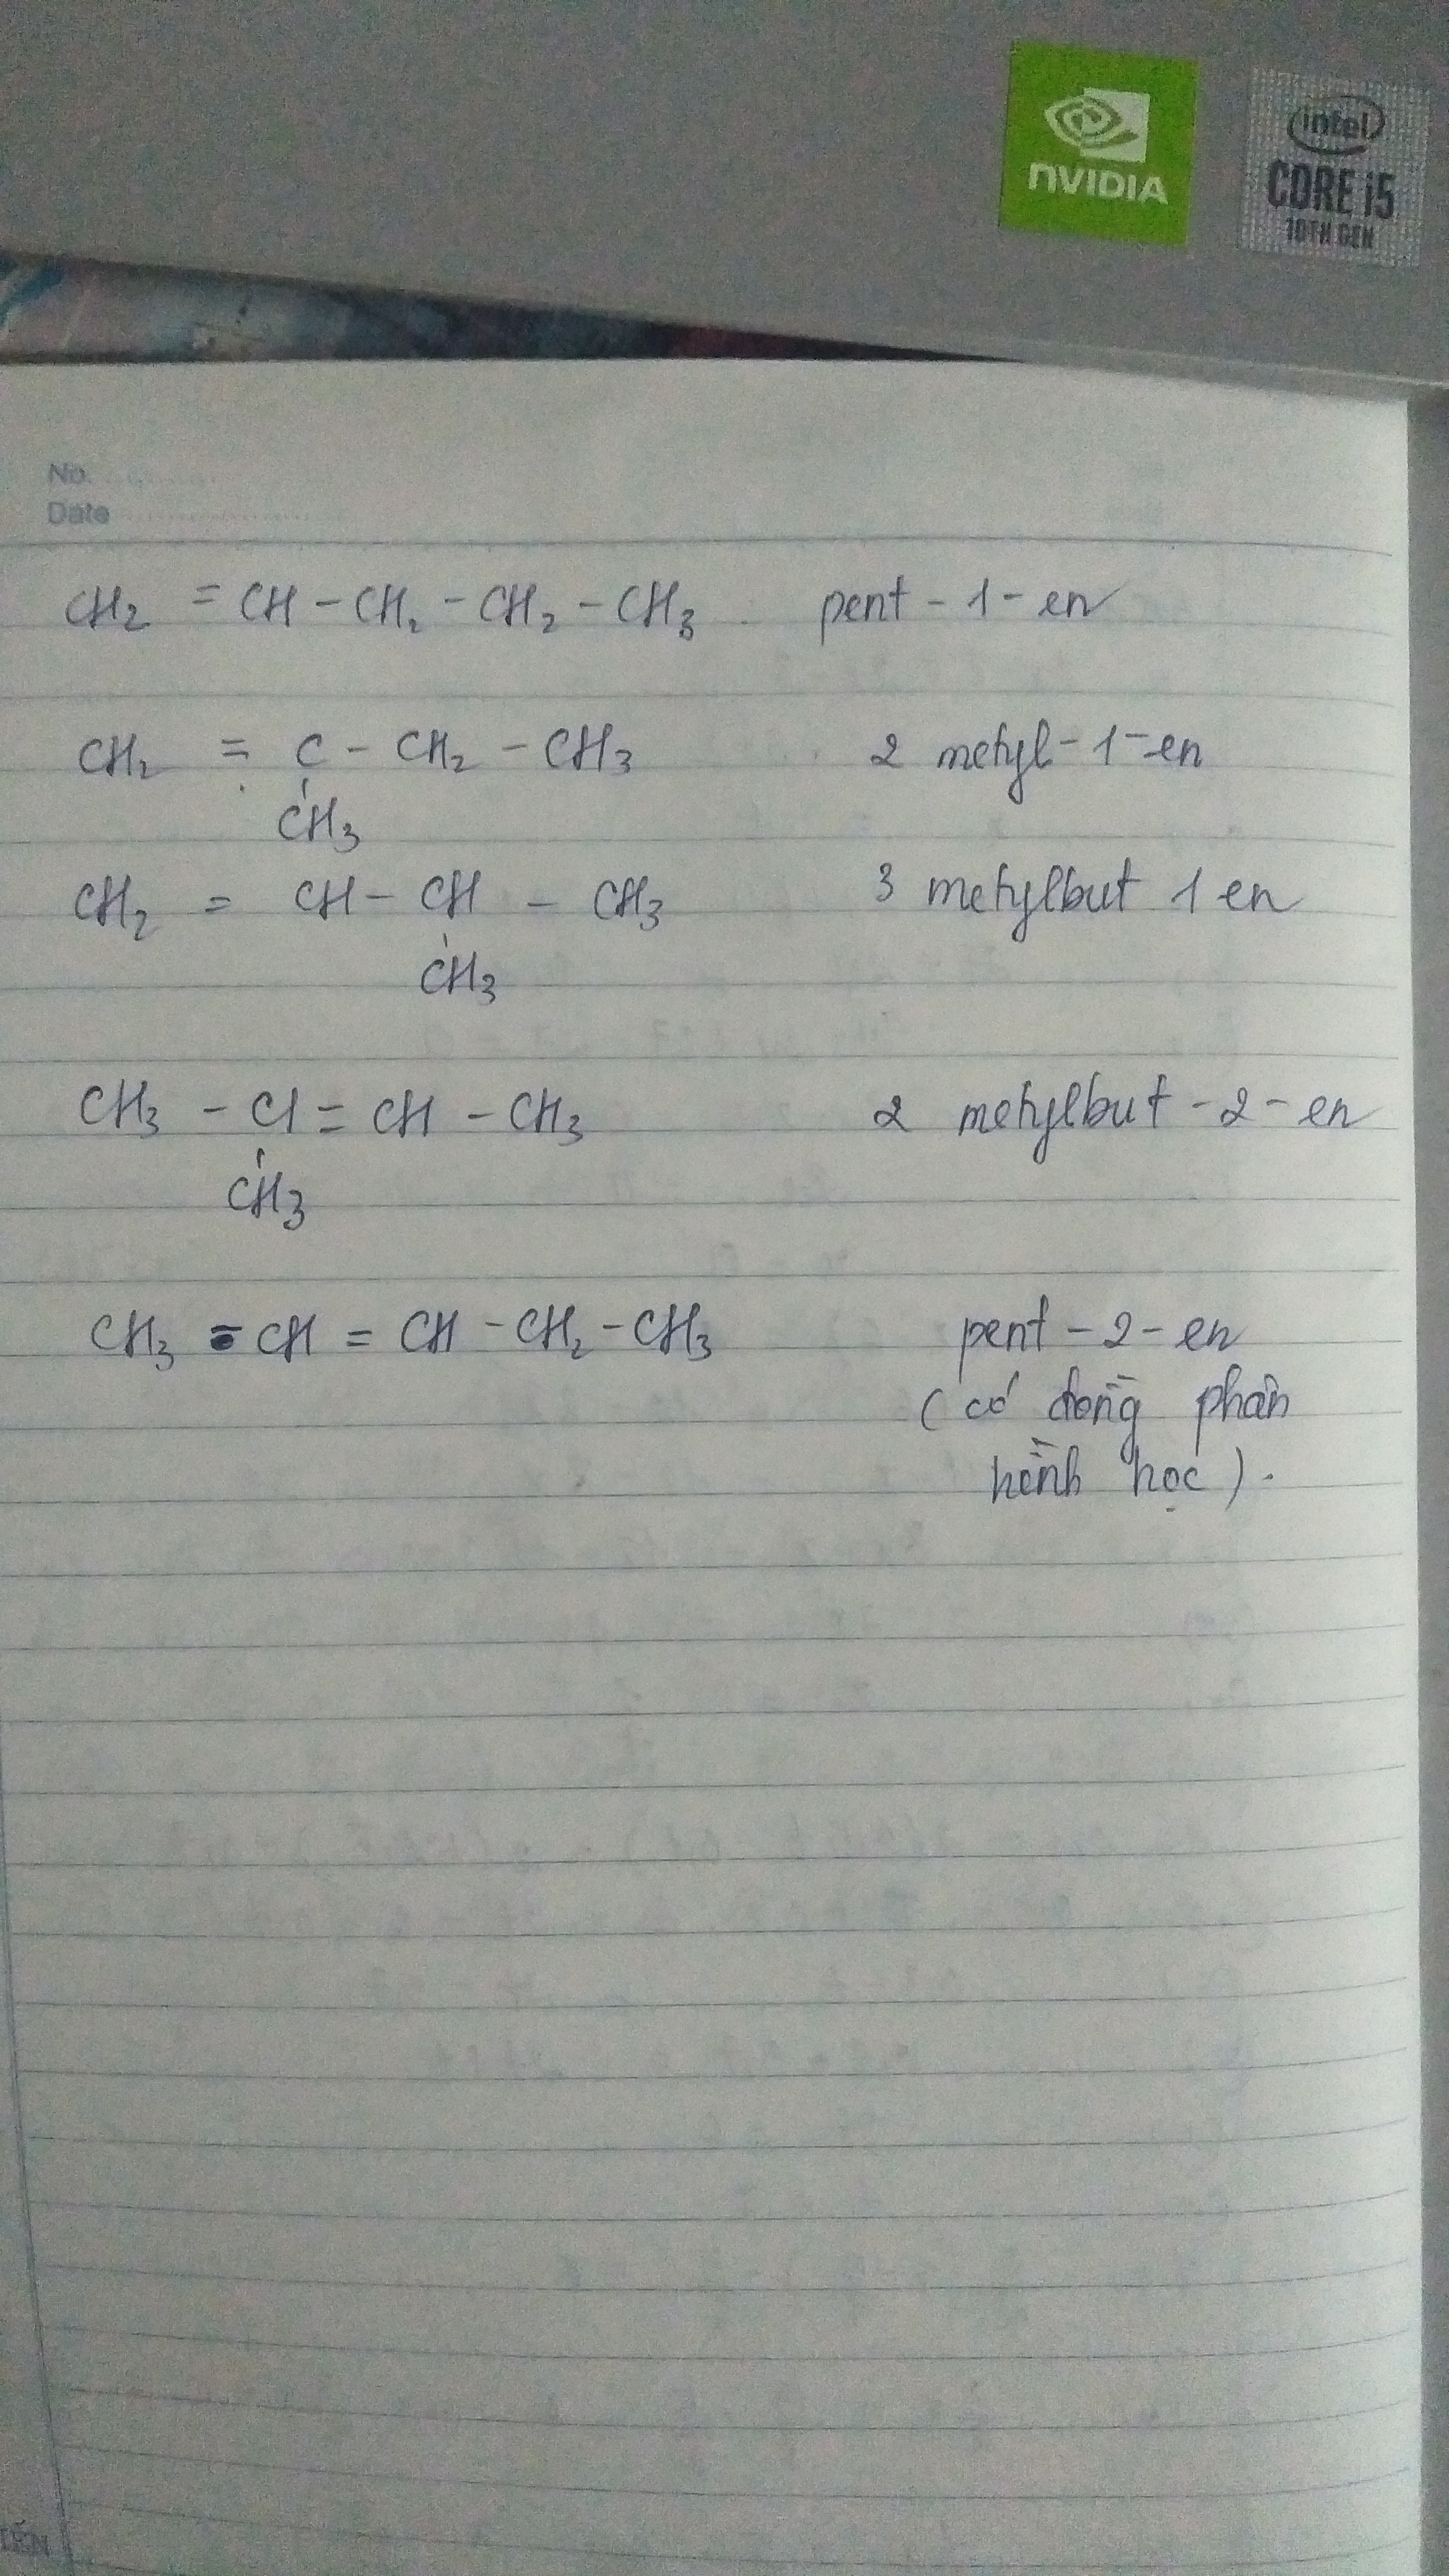 nVIDIA
intel
CORE i5
10TH GEN
No.
Date
CH₂ = CH - CH₂ - CH₂ - CH₃ pent - 1 - en
CH₂ = C - CH₂ - CH₃ 2 metyl - 1 - en
CH₃
CH₂ = CH - CH - CH₃ 3 metylbut 1 en
CH₃
CH₃ - Cl = CH - CH₃ 2 metylbut - 2 - en
CH₃
CH₃ - CH = CH - CH₂ - CH₃ pent - 2 - en
( có đồng phân
hình học ) .